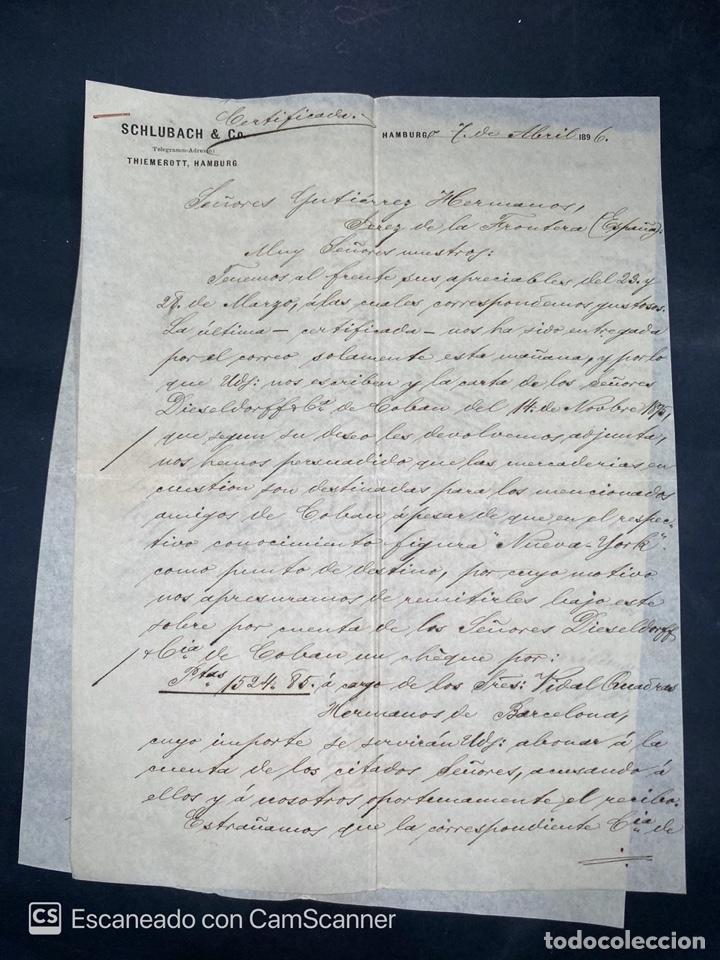 Certificada.
SCHLUBACH & Co.
Telegramm-Adresse:
THIEMEROTT, HAMBURG
HAMBURGo 7. de Abril 1896.
Señores Gutiérrez Hermanos,
Jerez de la Frontera (España).
Muy Señores nuestros:
Tenemos al frente sus apreciables del 23. y
28. de Marzo, á las cuales correspondemos gustosos.
La última – certificada – nos ha sido entregada
por el correo solamente esta mañana, y por lo
que Uds: nos escriben y la carta de los Señores
Dieseldorff & Co. de Coban del 14. de Novbre 1895,
que segun su deseo les devolvemos adjunta,
nos hemos persuadido que las mercaderias en
cuestion son destinadas para los mencionados
amigos de Coban á pesar de que en el respec-
tivo conocimiento figura "Nueva-York"
como punto de destino, por cuyo motivo
nos apresuramos de remitirles bajo este
sobre por cuenta de los Señores Dieseldorff
& Cia de Coban un chèque por:
Ptas 1524.85. á cargo de los Sres: Vidal Quadras
Hermanos de Barcelona,
cuyo importe se servirán Uds: abonar á la
cuenta de los citados Señores, acusando á
ellos y á nosotros oportunamente el recibo.
Estrañamos que la correspondiente Cia de
CS Escaneado con CamScanner
todocoleccion